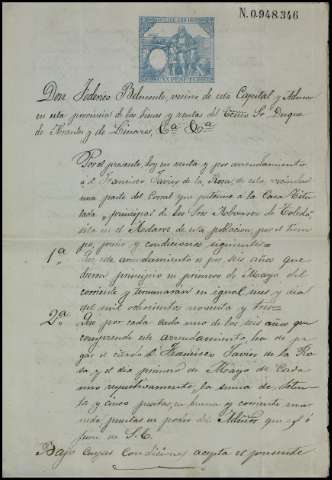 N. 0.948.346
Don Federico Belmonte, vecino de esta Capital y Admor
en esta provincia de los bienes y rentas del Excmo Sr. Duque
de Arante y de Linares, &a &a
Por el presente, doy en renta y por arrendamiento
a D. Francisco Javier de la Rosa, de esta vecindad
una parte del Corral que pertenece a la Casa titu-
lada o principal de los Sres
sita en el de esta poblacion, por el tiem-
po, precio y condiciones siguientes
1a. Que este arrendamiento es por seis años que
dieron principio en primero de Mayo del
corriente y terminaran en igual mes y dia
del mil ochocientos noventa y tres
2a. Que por cada cada uno de los seis años que
comprende este arrendamiento, ha de pa-
gar el citado D. Francisco Javier de la Ro-
sa y el dia primero de Mayo de Cada
uno respectivamente, la suma de seten-
ta y cinco pesetas, en buena y corriente mo-
neda, puestas en poder del Admor que es ó
fuere de S. E.
Bajo cuyas Condiciones acepta el presente